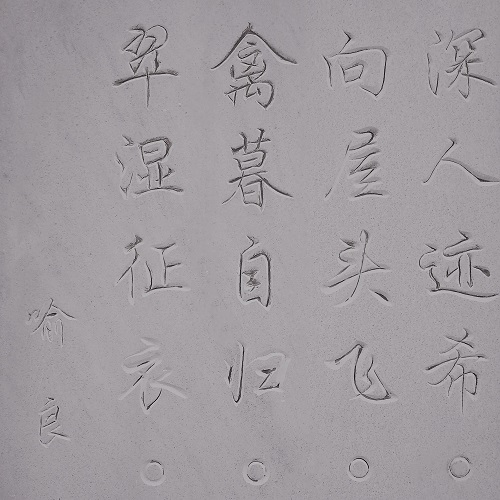 深人迹希。
向屋头飞。
禽暮自归。
翠湿征衣。
喻良